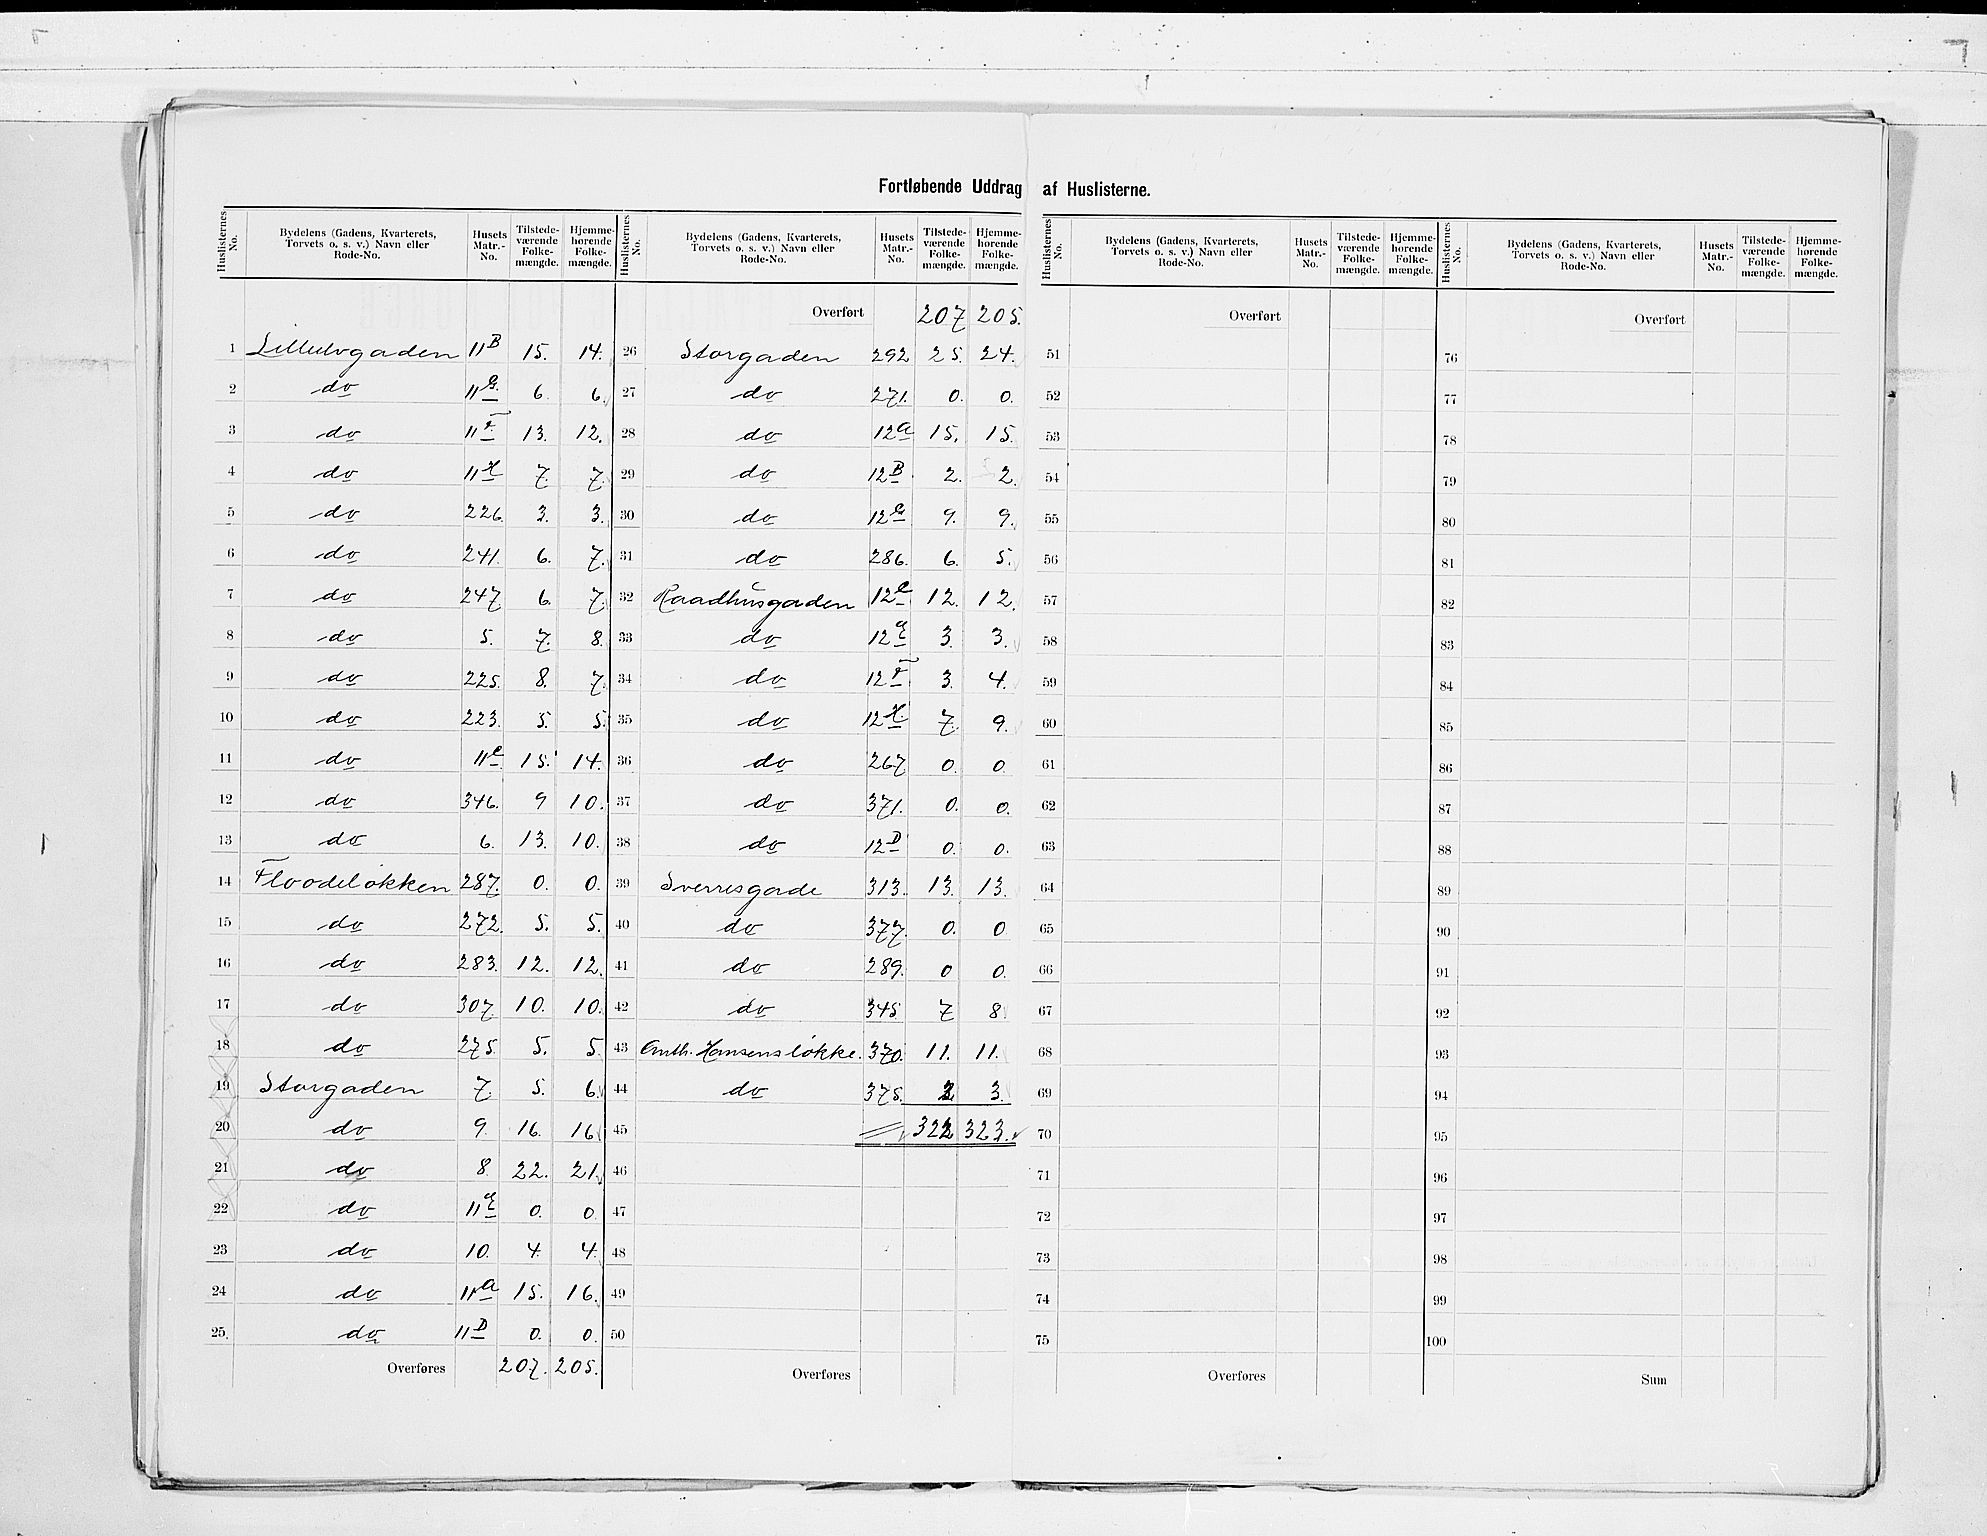 Fortløbende Uddrag af Huslisterne.
Huslisternes No. Bydelens (Gadens, Kvarterets, Torvets o. s. v.) Navn eller Rode-No. Husets Matr.-No. Tilstedeværende Folkemængde. Hjemmehørende Folkemængde.
1 Lilleelvgaden 11B 15. 14.
2 do 11G 6. 6.
3 do 11F 13. 12.
4 do 11H 7. 7.
5 do 226. 3. 3.
6 do 241. 6. 7.
7 do 247 6. 7.
8 do 5. 7. 8.
9 do 225. 8. 7.
10 do 223. 5. 5.
11 do 11C 15. 14.
12 do 346. 9 10.
13 do 6. 13. 10.
14 Floodeløkken 287. 0. 0.
15 do 272. 5. 5.
16 do 283. 12. 12.
17 do 307 10. 10.
18 do 275. 5. 5.
19 Storgaden 7. 5. 6.
20 do 9. 16. 16.
21 do 8. 22. 21.
22 do 11E 0. 0.
23 do 10. 4. 4.
24 do 11a 15. 16.
25. do 11D 0. 0.
Overføres 207. 205.
Huslisternes No. Bydelens (Gadens, Kvarterets, Torvets o. s. v.) Navn eller Rode-No. Husets Matr.-No. Tilstedeværende Folkemængde. Hjemmehørende Folkemængde.
Overført 207 205.
26 Storgaden 292 25. 24.
27 do 271. 0. 0.
28 do 12a 15. 15.
29 do 12B 2. 2.
30 do 12G 9. 9.
31 do 286. 6. 5.
32 Raadhusgaden 12C 12. 12.
33 do 12E 3. 3.
34 do 12F 3. 4.
35 do 12H 7. 9.
36 do 267 0. 0
37 do 371. 0. 0.
38 do 12D 0. 0.
39 Sverresgade 313. 13. 13.
40 do 377. 0. 0
41 do 289. 0 0.
42 do 345 7 8.
43 Anth. Hansens løkke. 370. 11. 11.
44 do 375. 3.
45 322 323.
46
47
48
49
50
Overføres
Huslisternes No. Bydelens (Gadens, Kvarterets, Torvets o. s. v.) Navn eller Rode-No. Husets Matr.-No. Tilstedeværende Folkemængde. Hjemmehørende Folkemængde.
Overført
51
52
53
54
55
56
57
58
59
60
61
62
63
64
65
66
67
68
69
70
71
72
73
74
75
Overføres
Huslisternes No. Bydelens (Gadens, Kvarterets, Torvets o. s. v.) Navn eller Rode-No. Husets Matr.-No. Tilstedeværende Folkemængde. Hjemmehørende Folkemængde.
Overført
76
77
78
79
80
81
82
83
84
85
86
87
88
89
90
91
92
93
94
95
96
97
98
99
100
Sum